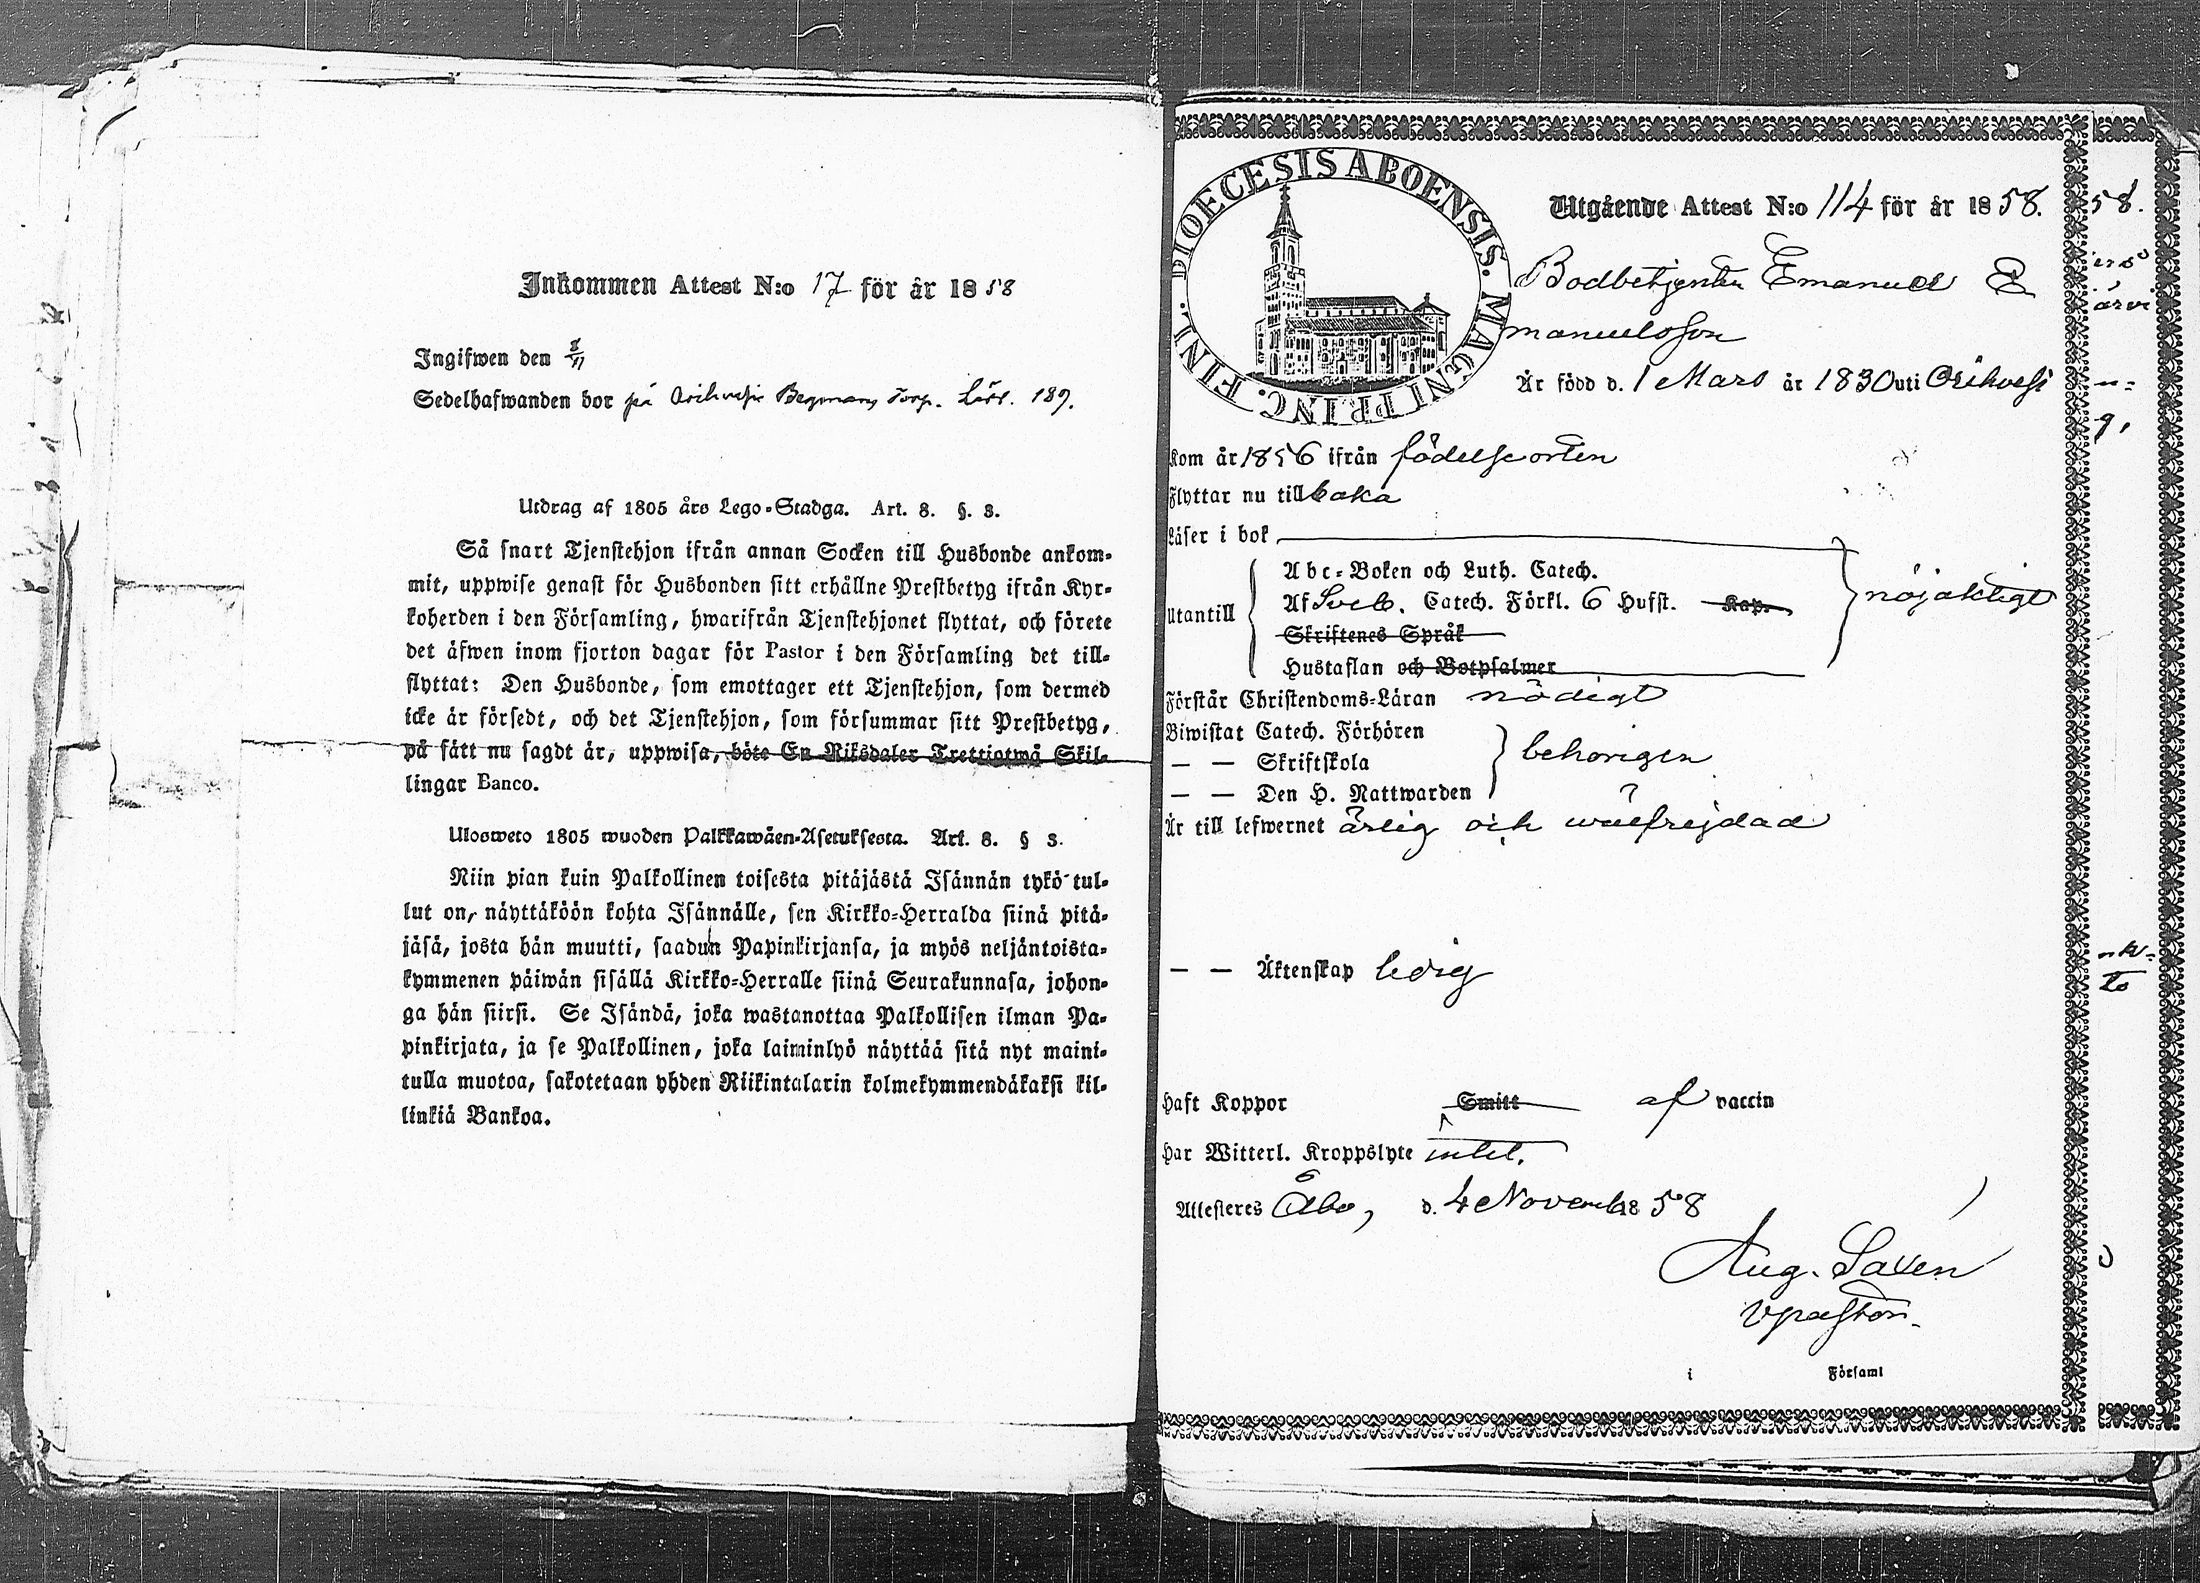 Inkommen Attest N:o 17 för år 1858
Ingifwen den 8/11
Sedelhafwanden bor på Orihvesi Bergmans Torp. Läsr. 189.
Utdrag af 1805 års Lego-Stadga. Art. 8. §. 3.
Så snart Tjenstehjon ifrån annan Socken till Husbonde ankom-
mit, uppwise genast för Husbonden sitt erhållne Prestbetyg ifrån Kyr-
koherden i den Församling, hwarifrån Tjenstehjonet flyttat, och förete
det äfwen inom fjorton dagar för Pastor i den Församling det till-
flyttat: Den Husbonde, som emottager ett Tjenstehjon, som dermed
icke är försedt, och det Tjenstehjon, som försummar sitt Prestbetyg,
på sätt nu sagdt är, uppwisa, böte En Riksdaler Trettiotwå Skil-
lingar Banco.
Ulosweto 1805 wuoden Palkkawäen-Asetuksesta. Art. 8. § 3.
Niin pian kuin Palkollinen toisesta pitäjästä Isännän tykö tul-
lut on, näyttäköön kohta Isännälle, sen Kirkko-Herralda siinä pitä-
jäsä, josta hän muutti, saadun Papinkirjansa, ja myös neljäntoista-
kymmenen päiwän sisällä Kirkko-Herralle siinä Seurakunnasa, johon-
ga hän siirsi. Se Isändä, joka wastanottaa Palkollisen ilman Pa-
pinkirjata, ja se Palkollinen, joka laiminlyö näyttää sitä nyt maini-
tulla muotoa, sakotetaan yhden Riikintalarin kolmekymmendäkaksi kil-
linkiä Bankoa.
DIOECESIS ABOENSIS. MAGNI PRINC. FINL.
Utgående Attest N:o 114 för år 1858.
Bodbetjenten Emanuel E
manuelsson
Är född d. 1 Mars år 1830 uti Orihvesi
Kom år 1856 ifrån födelseorten
Flyttar nu tillbaka
Läser i bok
Abc-Boken och Luth. Catech.
Utantill Af Sveb. Catech. Förkl. 6 Hufst. Kap. nöjaktigt
Skriftenes Språk
Hustaflan och Botpsalmer
Förstår Christendoms-Läran nödigt
Biwistat Catech. Förhören
— — Skriftskola behörigen
— — Den H. Nattwarden
Är till lefwernet ärlig och wälfrejdad
— — Äktenskap ledig
Haft Koppor Smitt af vaccin
Har Witterl. Kroppslyte intet.
Attesteres Åbo, d. 4 November 1858
Aug. Saxén
vpastor.
i Församl
58.